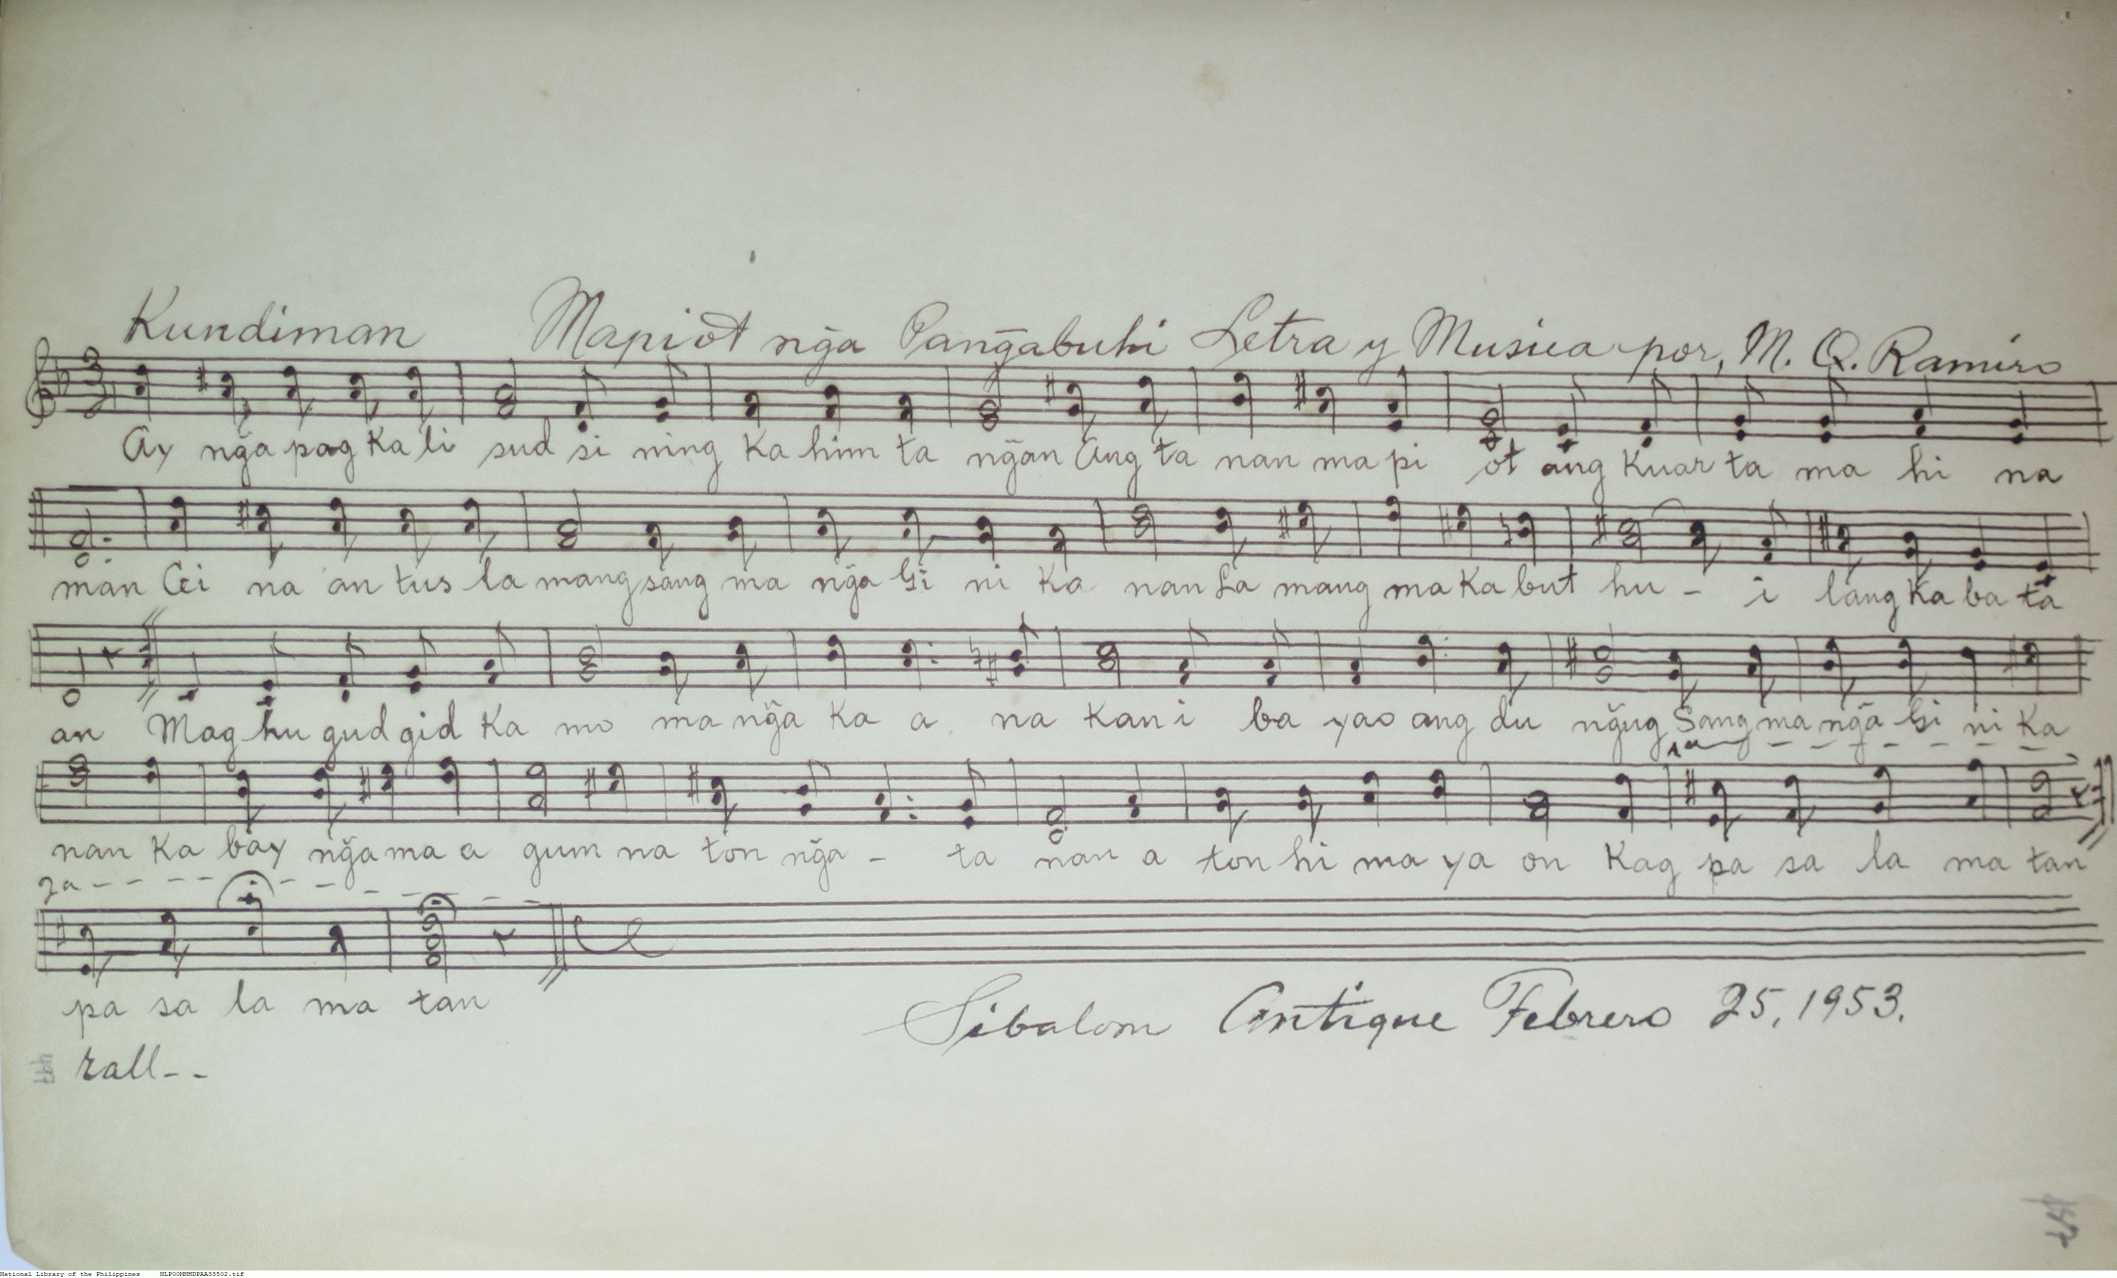 Kundiman Mapiot ng̃a Pang̃abuhi Letra y Musica por, M. Q. Ramiro
Ay ng̃a pag ka li sud si ning ka him ta ng̃an Ang ta nan ma pi ot ang kuar ta ma hi na
man Gi na an tus la mang sang ma ng̃a Gi ni ka nan La mang ma ka but hu - i lang ka ba ta
an Mag hu gud gid ka mo ma ng̃a ka a na kan i ba yao ang du ng̃ug Sang ma ng̃a Gi ni ka
1a
nan ka bay ng̃a ma a gum na ton ng̃a - ta nan a ton hi ma ya on kag pa sa la ma tan
2a
pa sa la ma tan
rall - -
Sibalom Antique Febrero 25, 1953.
National Library of the Philippines NLPOOMNMDPAA33502.tif